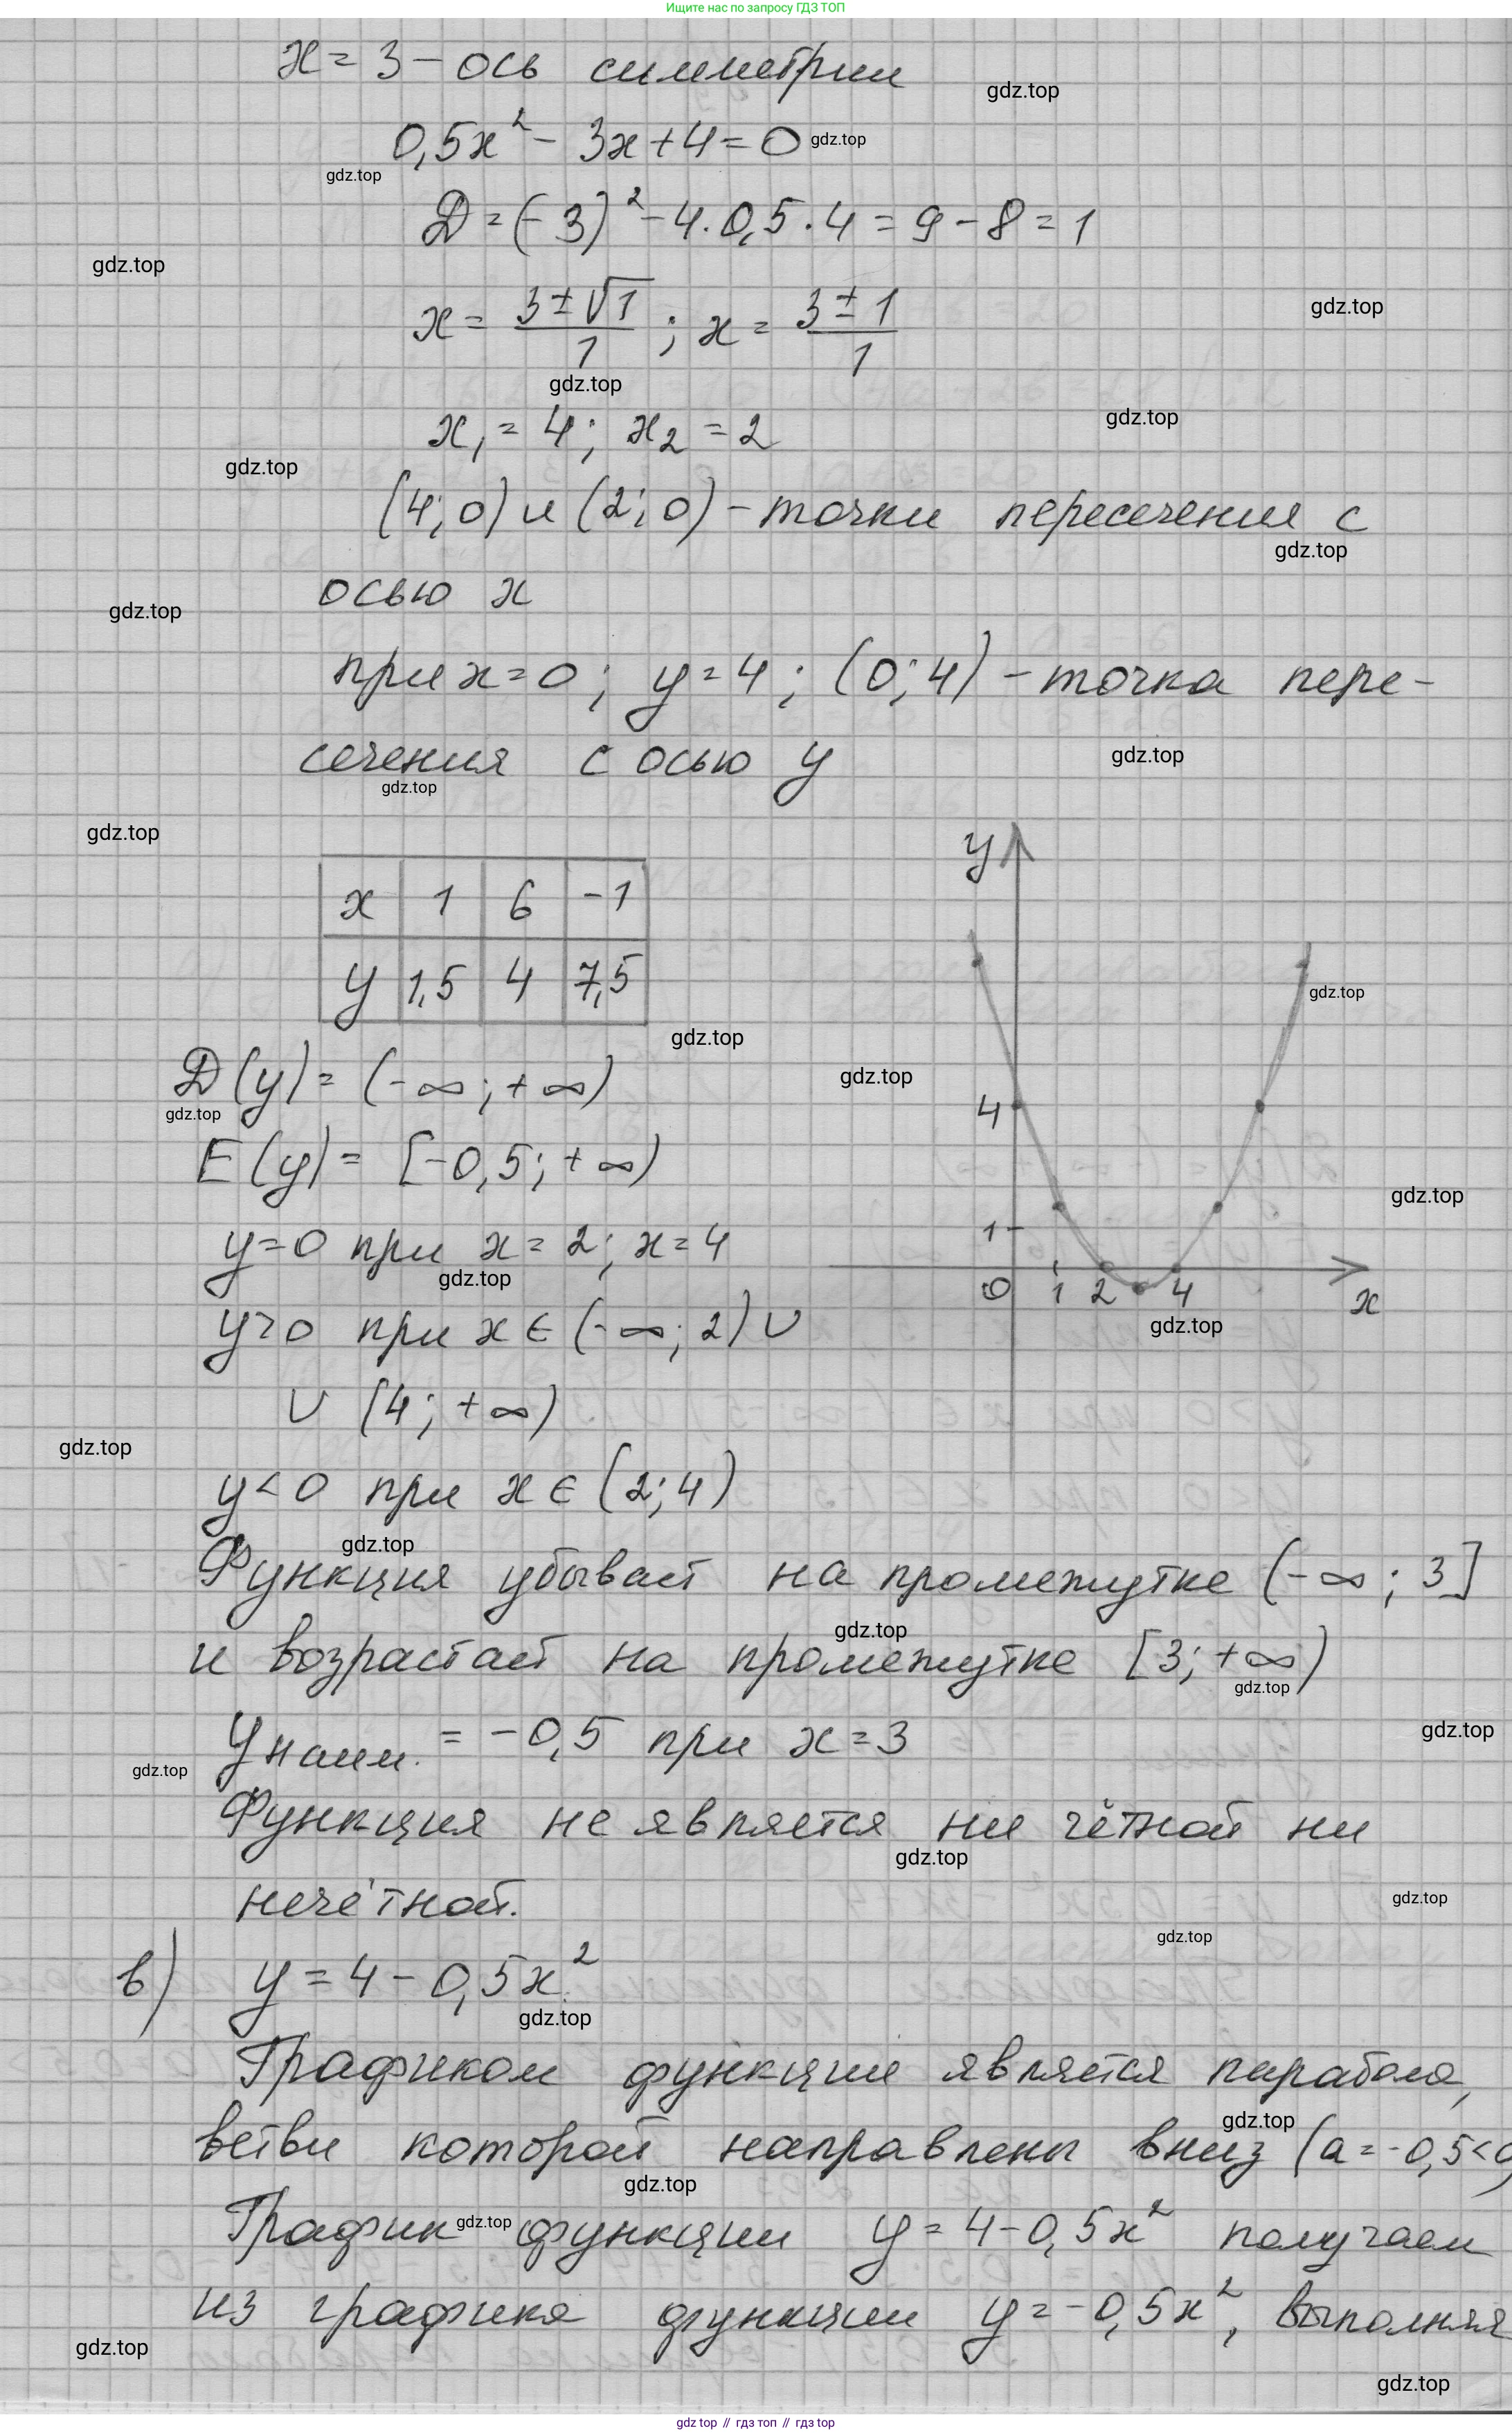 Ищите нас по запросу ГДЗ ТОП
x = 3 – ось симметрии
gdz.top
0,5x² – 3x + 4 = 0
gdz.top
gdz.top
Д = (–3)² – 4 · 0,5 · 4 = 9 – 8 = 1
gdz.top
gdz.top
x = (3 ± √1)/1 ; x = (3 ± 1)/1
gdz.top
gdz.top
x₁ = 4; x₂ = 2
gdz.top
(4; 0) и (2; 0) – точки пересечения с
gdz.top
осью x
gdz.top
при x = 0; y = 4; (0; 4) – точка пере-
сечения с осью y
gdz.top
gdz.top
gdz.top
x 1 6 –1
y 1,5 4 7,5
y
4
1
0 1 2 4
x
gdz.top
gdz.top
gdz.top
gdz.top
gdz.top
Д(y) = (–∞; +∞)
gdz.top
E(y) = [–0,5; +∞)
y = 0 при x = 2; x = 4
gdz.top
y > 0 при x ∈ (–∞; 2) ∪
∪ (4; +∞)
gdz.top
y < 0 при x ∈ (2; 4)
gdz.top
Функция убывает на промежутке (–∞; 3]
gdz.top
и возрастает на промежутке [3; +∞)
gdz.top
gdz.top
yнаим. = –0,5 при x = 3
gdz.top
Функция не является ни чётной ни
gdz.top
нечётной.
gdz.top
gdz.top
в) y = 4 – 0,5x²
gdz.top
Графиком функции является парабола,
gdz.top
ветви которой направлены вниз (a = –0,5 < 0)
gdz.top
График функции y = 4 – 0,5x² получаем
gdz.top
из графика функции y = –0,5x², выполняя
gdz.top
gdz.top
gdz top // гдз топ // gdz top